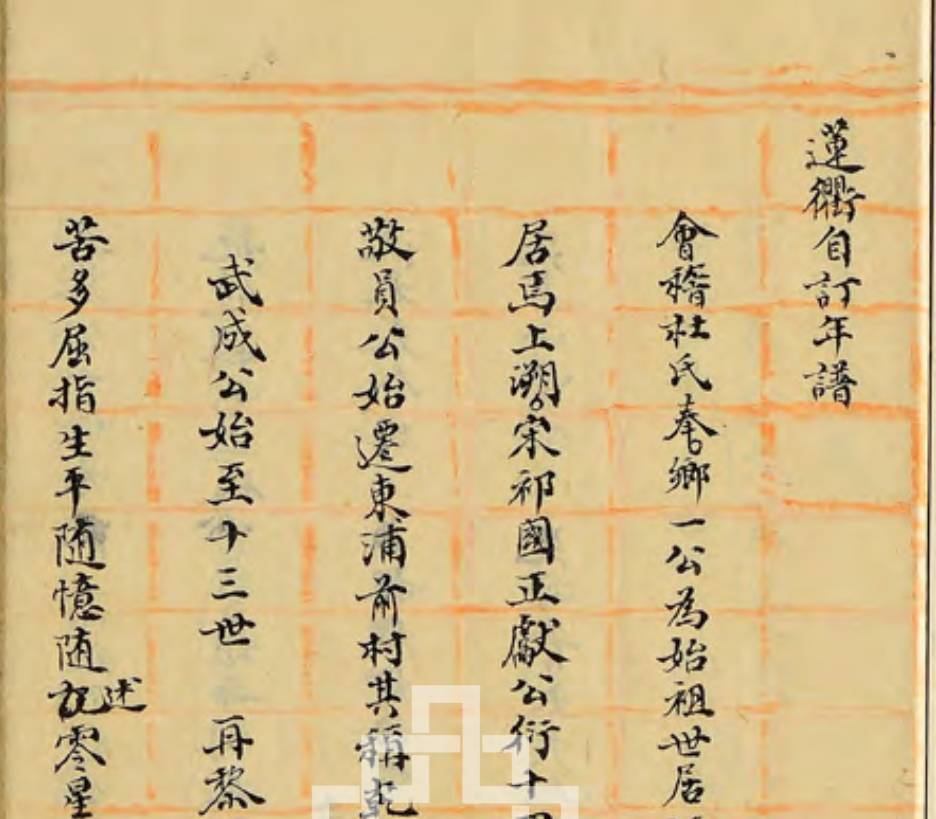 蓮衢自訂年譜
會稽杜氏奉鄉一公為始祖世居
居焉上溯宋祁國正獻公衍十
敬員公始遷東浦前村其稱乾
武成公始至十三世 再黎
苦多屈指生平随憶随記述零星